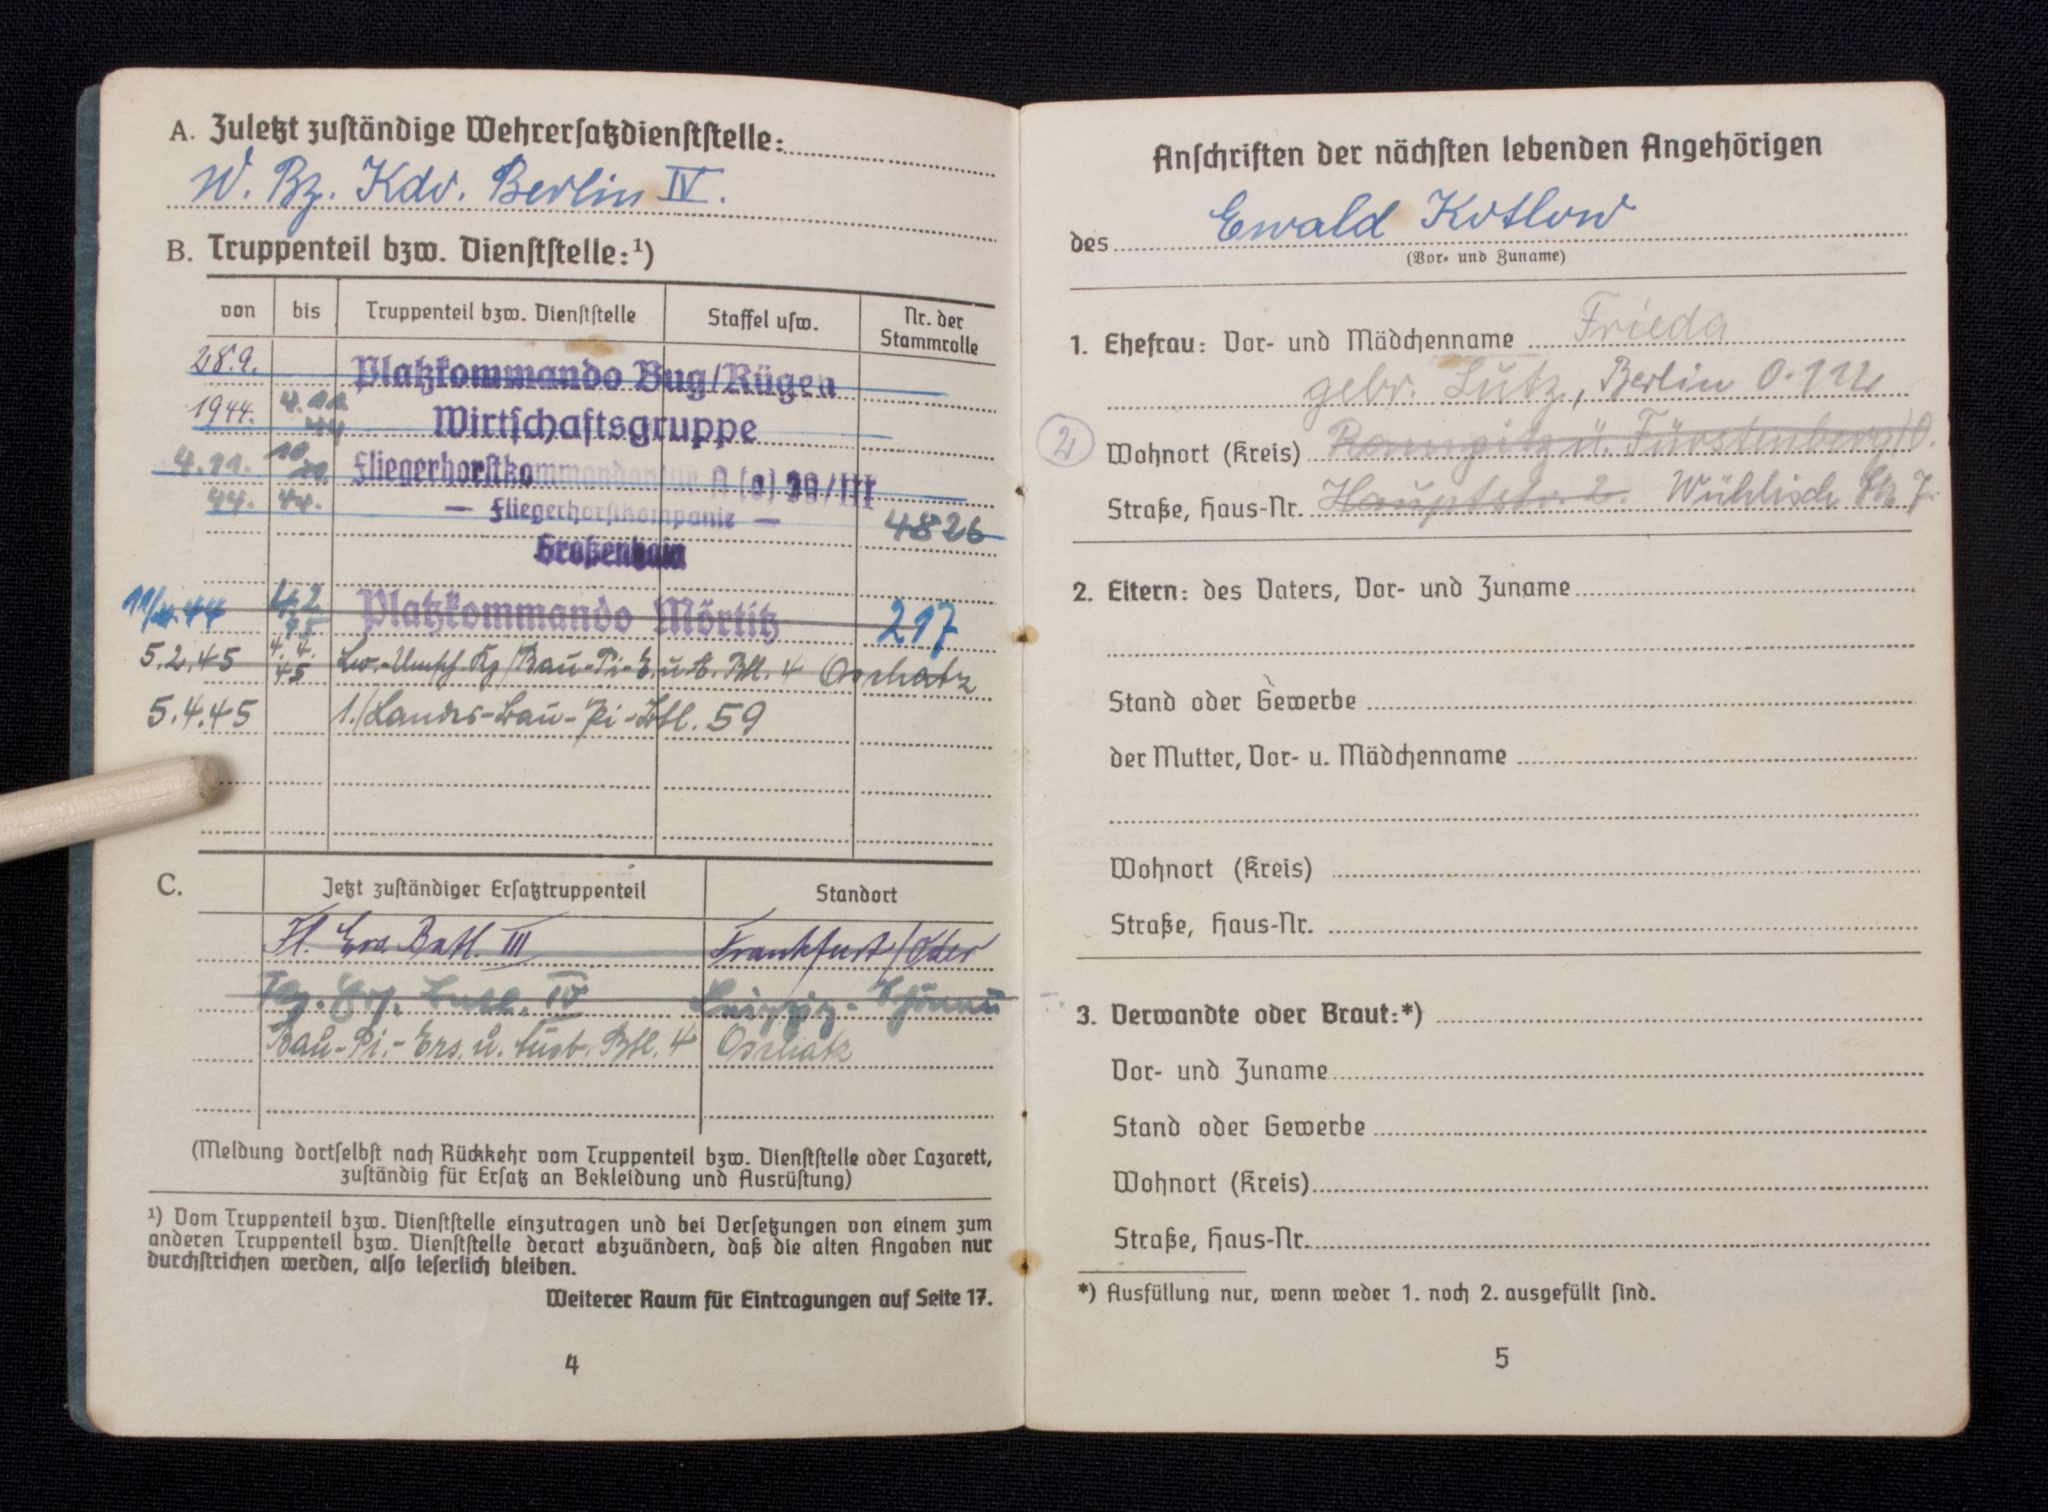 A. Zuletzt zuständige Wehrersatzdienststelle:
W. Bz. Kdo. Berlin IV.
B. Truppenteil bzw. Dienststelle:¹)
von bis Truppenteil bzw. Dienststelle Staffel usw. Nr. der Stammrolle
28.9. Platzkommando Bug/Rügen
1944. 4.11. 44 Wirtschaftsgruppe
4.11. 10. Fliegerhorstkommandantur A (o) /III
44. 44. — Fliegerhorstkompanie — 4826
Großenhain
44 Platzkommando Mörtitz 217
5.2.45 4.4. 45 Bau-Pi-E. u. A. Btl. 4 Oschatz
5.4.45 1./Landes-Bau-Pi-Btl. 59
C. Jetzt zuständiger Ersatztruppenteil Standort
Fl. Ers. Batl. III Frankfurt/Oder
IV Leipzig-Schönau
Bau-Pi.-Ers. u. Ausb. Btl. 4 Oschatz
(Meldung dortselbst nach Rückkehr vom Truppenteil bzw. Dienststelle oder Lazarett,
zuständig für Ersatz an Bekleidung und Ausrüstung)
¹) Vom Truppenteil bzw. Dienststelle einzutragen und bei Versetzungen von einem zum
anderen Truppenteil bzw. Dienststelle derart abzuändern, daß die alten Angaben nur
durchstrichen werden, also leserlich bleiben.
Weiterer Raum für Eintragungen auf Seite 17.
4
Anschriften der nächsten lebenden Angehörigen
des Ewald Kotlow
(Vor- und Zuname)
1. Ehefrau: Vor- und Mädchenname Frieda
gebr. Lutz, Berlin O.112
2 Wohnort (Kreis) ü. Fürstenberg/O.
Straße, Haus-Nr. Hauptstr. 2. Wühlisch Str. 7.
2. Eltern: des Vaters, Vor- und Zuname
Stand oder Gewerbe
der Mutter, Vor- u. Mädchenname
Wohnort (Kreis)
Straße, Haus-Nr.
3. Verwandte oder Braut:*)
Vor- und Zuname
Stand oder Gewerbe
Wohnort (Kreis)
Straße, Haus-Nr.
*) Ausfüllung nur, wenn weder 1. noch 2. ausgefüllt sind.
5